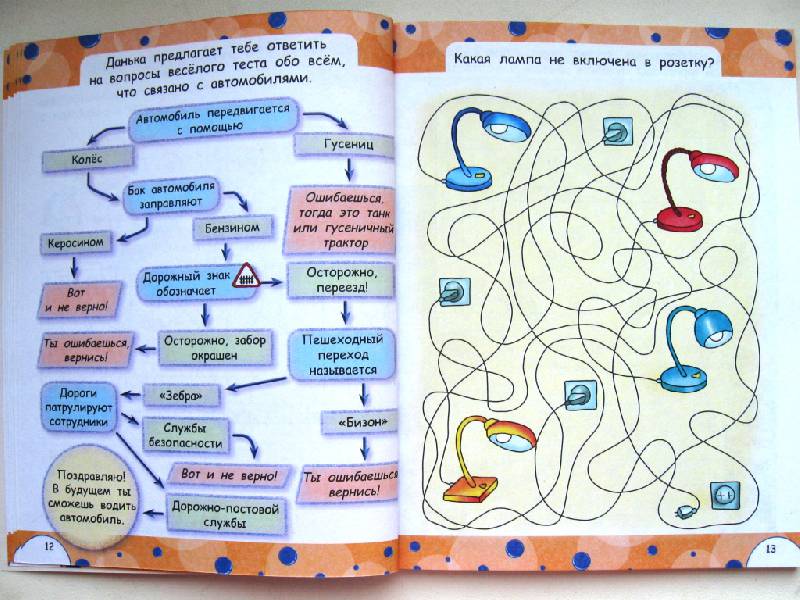 Данька предлагает тебе ответить
на вопросы весёлого теста обо всём,
что связано с автомобилями.
Автомобиль передвигается
с помощью
Колёс
Гусениц
Бак автомобиля
заправляют
Ошибаешься,
тогда это танк
или гусеничный
трактор
Керосином
Бензином
Вот
и не верно!
Дорожный знак
обозначает
Осторожно,
переезд!
Ты ошибаешься,
вернись!
Осторожно, забор
окрашен
Пешеходный
переход
называется
Дороги
патрулируют
сотрудники
«Зебра»
Службы
безопасности
«Бизон»
Вот и не верно!
Ты ошибаешься,
вернись!
Поздравляю!
В будущем ты
сможешь водить
автомобиль.
Дорожно-постовой
службы
12
Какая лампа не включена в розетку?
13